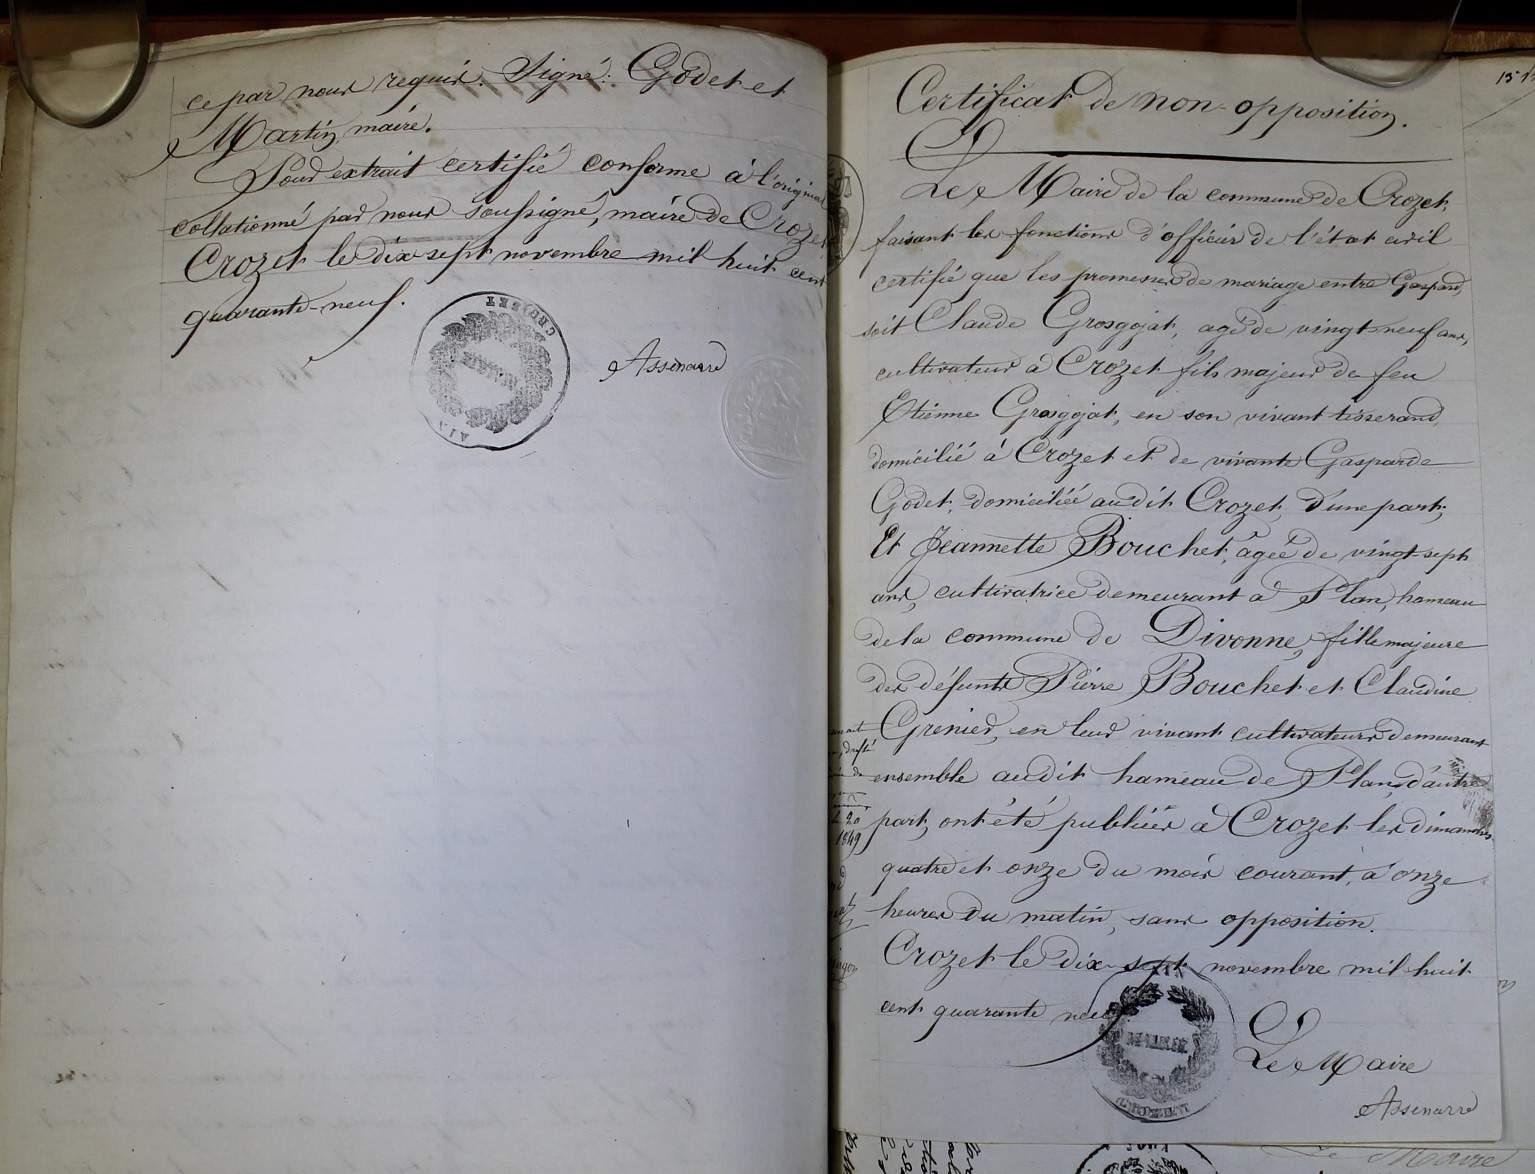 ce par nous requis. Signé: Godet et
Martin, maire.
Pour extrait certifié conforme à l'original
collationné par nous soussigné, maire de Crozet
Crozet le dix-sept novembre mil huit cent
quarante-neuf.
CROZET
MAIRIE
AIN
Assenarre
Certificat de non-opposition.
Le Maire de la commune de Crozet,
faisant les fonctions d'officier de l'état civil
certifie que les promesses de mariage entre Gaspard,
soit Claude Grosgojat, agé de vingt-neuf ans,
cultivateur à Crozet fils majeur de feu
Etienne Grosgojat, en son vivant tisserand,
domicilié à Crozet et de vivante Gasparde
Godet, domiciliée audit Crozet, d'une part;
Et Jeannette Bouchet, âgée de vingt-sept
ans, cultivatrice demeurant à Plan, hameau
de la commune de Divonne, fille majeure
des défunts Pierre Bouchet et Claudine
Grenier, en leur vivant cultivateurs demeurant
ensemble audit hameau de Plan, d'autre
part, ont été publiées à Crozet les dimanches
quatre et onze du mois courant, à onze
heures du matin, sans opposition.
Crozet le dix-sept novembre mil-huit
cent quarante neuf.
AIN
MAIRIE
Le Maire
Assenarre
1849
Le Maire